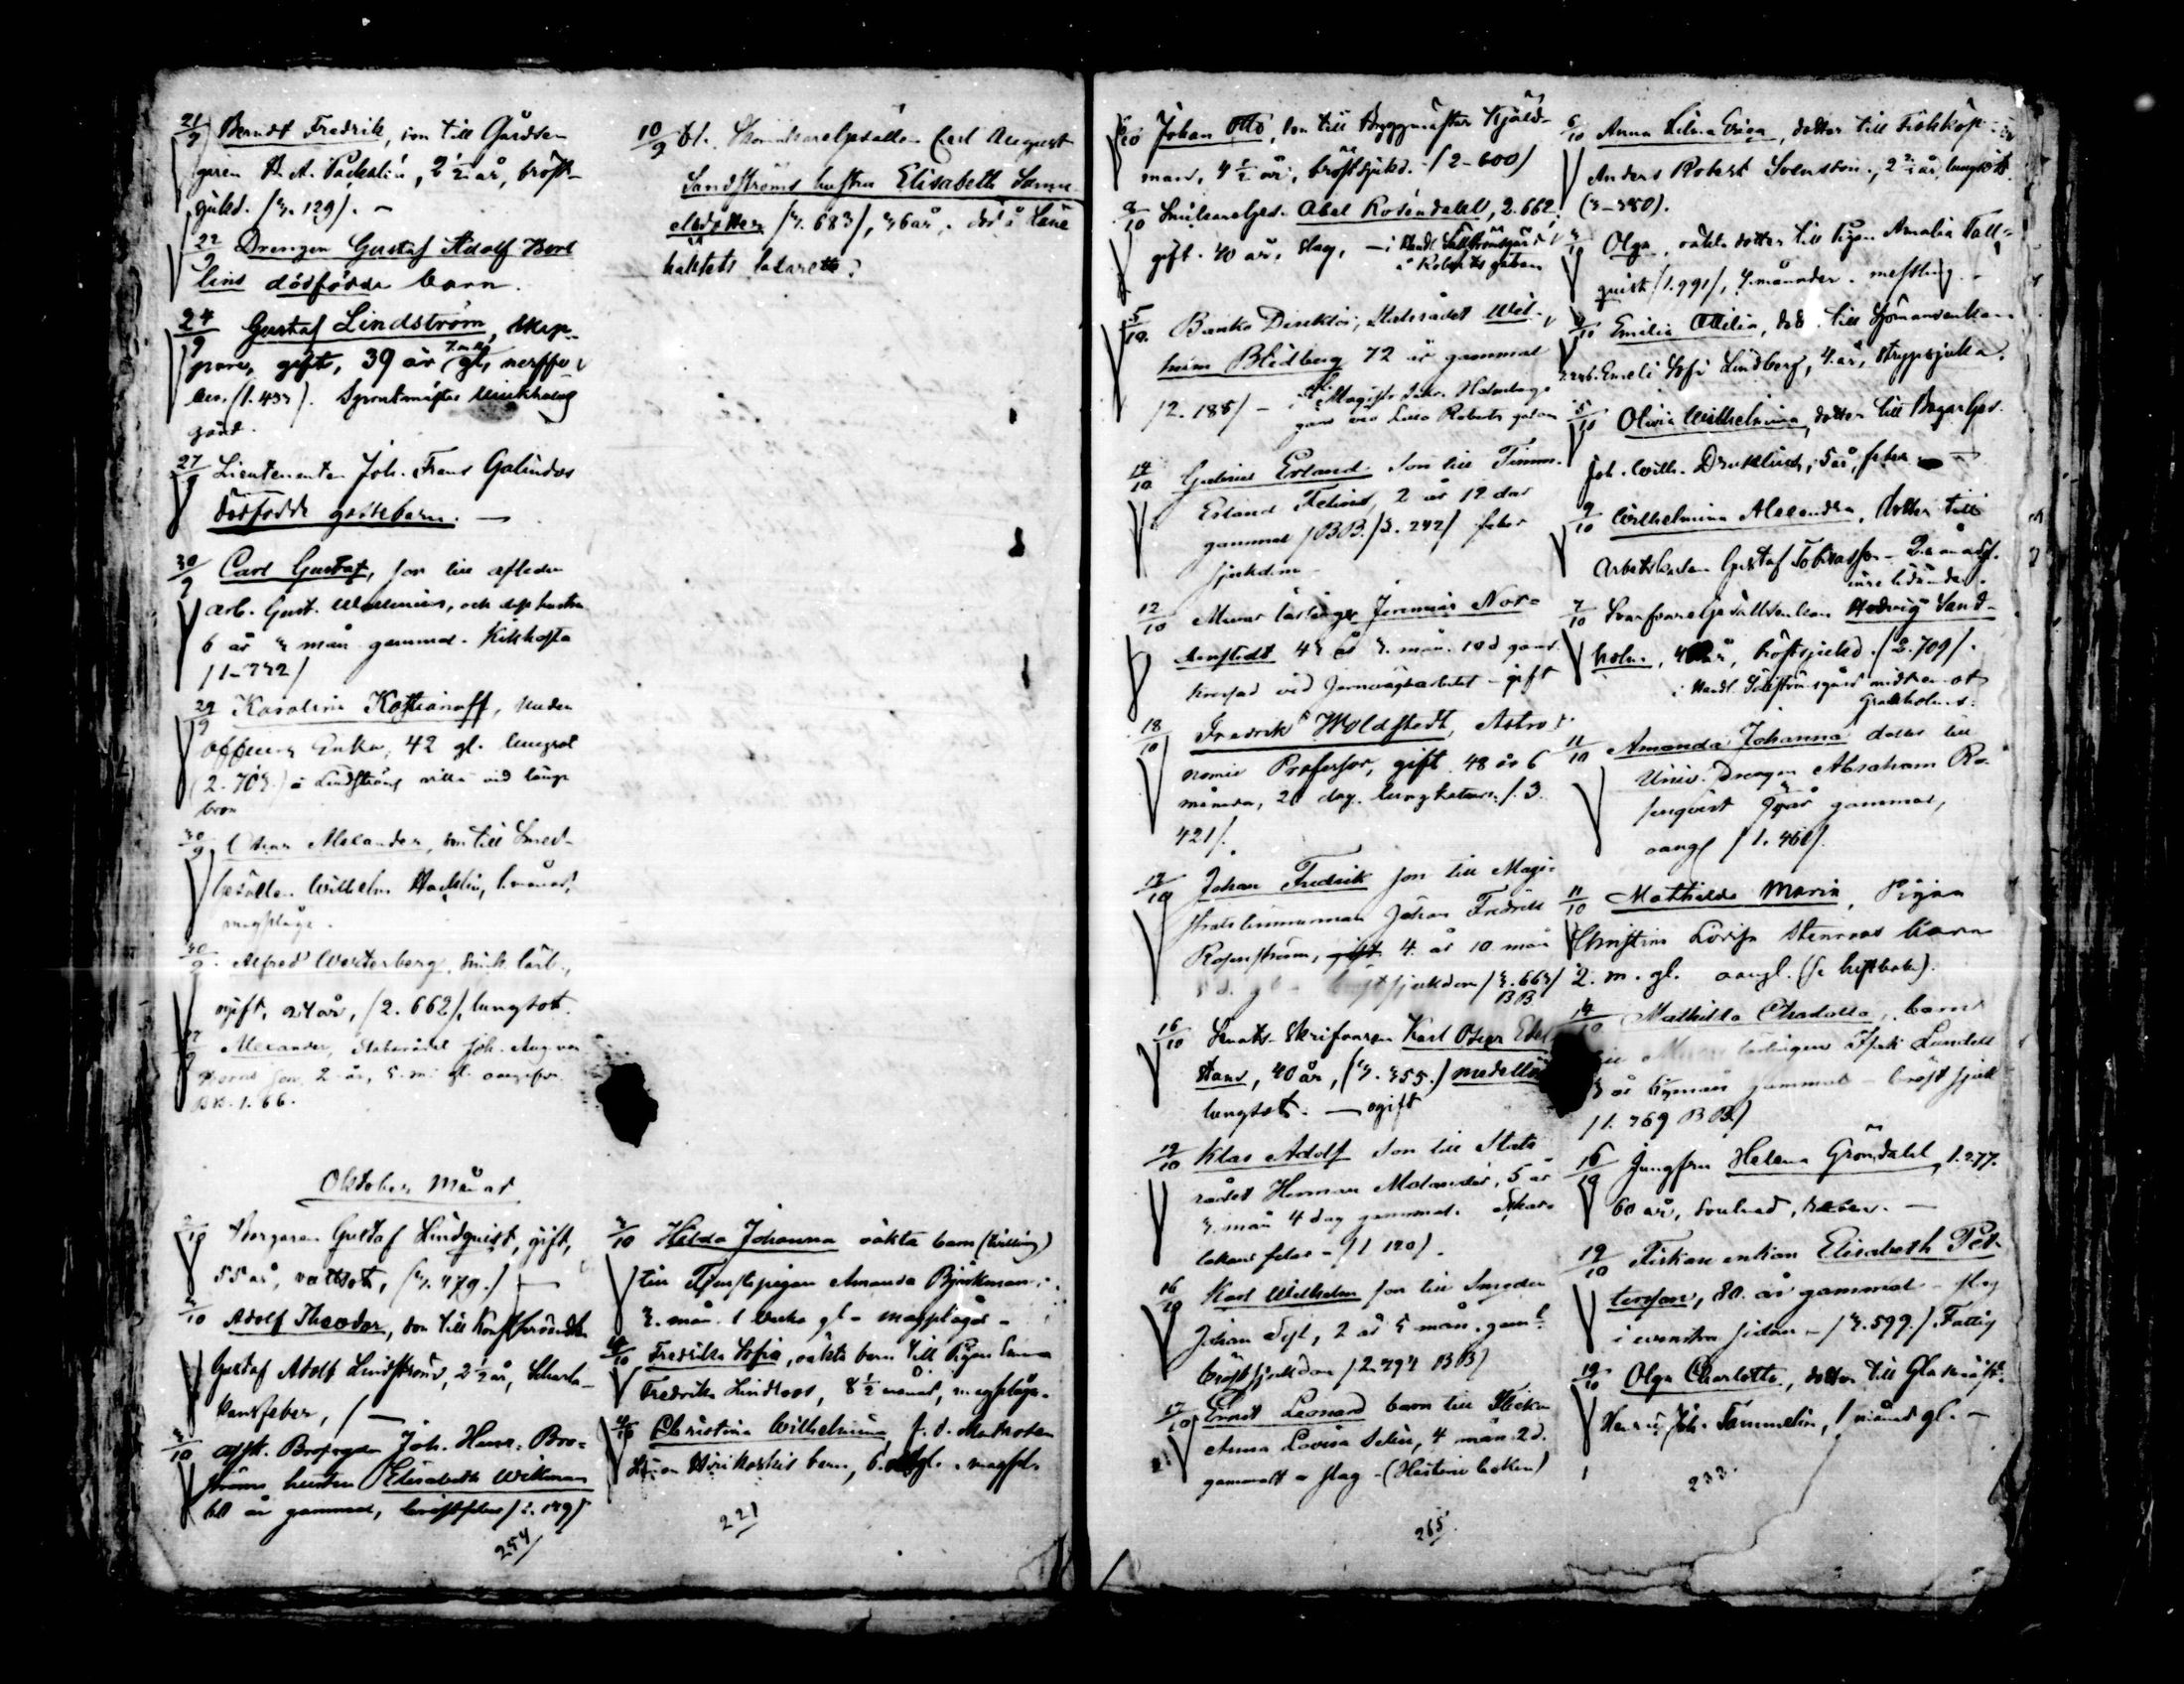 21/9 Berndt Fredrik, son till Gårdsä-
garen A. A. Packalén, 2½ år, bröst-
sjukd. /3. 129/. —
22/9 Drengen Gustaf Adolf Bert
lins dödfödda barn.
24/9 Gustaf Lindström, skep-
pare, gift, 39 år gl, nerffe-
ber. (1. 433). Sprutmästar
gård.
27/9 Lieutenanten Joh. Frans Galindos
dödfödda gossebarn. —
30/9 Carl Gustaf, son till afledne
arb. Gust. Wallenius, och dess hustru
6 år 3 mån gammal. Kikhosta
/1-772/
29/9 Karolina Kostianoff, Under
officers Enka, 42 gl. lungsot
(2. 703.) i Lindströms villa vid långa
bron
30/9 Oskar Alexander, son till Smed-
gesällen Wilhelm Hacklin, 1 månad,
magplåga.
30/9 Alfred Westerberg, Smih. lärl.,
ogift, 24 år, /2. 662/, lungsot.
27/9 Alexander, Statsrådet Joh. Aug. von
Borns son, 2 år, 5. m. gl.
BK. 1. 66.
Oktober Månad
2/10 Borgaren Gustaf Lindquist, gift,
55 år, vattsot, (3. 479.) —
2/10 Adolf Theodor, son till Konstförvandten
Gustaf Adolf Lindström, 2½ år, Scharla-
kansfeber, / —
3/10 afsk. Brofogden Joh. Henr. Bro-
ströms hustru Elisabeth Wikman
60 år gammal, bröstfeber /2. 149/
254/
10/9 bl. Skomakaregesällen Carl August
Sandströms hustru Elisabeth Samu-
elsdotter /3. 683/, 36 år. död å Läne
häktets lazarett?
3/10 Hilda Johanna oäkta barn (tvilling)
till Tjenstepigan Amanda Björkman.
3. mån. 1 vecka gl - magplågor -
4/10 Fredrika Sofia, oäkta barn till Pigan Emma
Fredrika Lindroos, 8½ månad, magplåga.
4/10 Christina Wilhelmina, f. d. Matrosen
barn, 6. gl. magpl.
221/
6/10 Johan Otto, son till Byggmästar Kjäld-
man, 4½ år, bröstsjukd. - (2-600)
3/10 Snickareges. Abel Rosendahl, 2. 662.
gift. 40 år, slag, — i Handl. Sallströms gård
å Roberts gatan
5/10. Banko Direktör, Statsrådet Wil-
helm Blidberg 72 år gammal
/2. 185/ — i Magistr. Sekr. Holmbergs
gård vid Lilla Roberts gatan
12/10 Gabriel Erland. Son till Timm.
Erland Felius, 2 år 12 dar
gammal /BB. /3. 242/ feber
sjukdom
12/10 Murar lärlinge Jeremias Nor-
denstedt 43 år 3. mån. 10 d gaml.
krossad vid Jernvägsarbetet - gift
18/10 Fredrik Woldstedt, Astro-
nomie Professor, gift. 48 år 6
månader, 20 dag. lungkatarr. /. 3.
421/.
12/10 Johan Fredrik son till Magi-
strats timmerman Johan Fredrik
Rosenström, gift 4. år 10 mån
5 d. gl - bröstsjukdom /3. 663/
BB
16/10 Senats Skrifvaren Karl Oskar Edel
stand, 40 år, (3. 355.) medellös
lungsot. — ogift
12/10 Klas Adolf Son till Stats
rådet Herman Molander, 5 år
3. mån 4 dag gammal. Skar-
lakans feber - /1 120/.
16/10 Karl Wilhelm son till Smeden
Johan Sjl, 2 år 5 mån. gaml
bröstsjukdom /2-494 BB)
17/10 Ernst Leonard barn till Flickan
Anna Lovisa Selin, 4 mån. 2 d.
gammalt - slag - (Historie boken)
265/.
6/10 Anna Selma Erica, dotter till Fiskköp-
Anders Robert Svensson, 2½ år, lungsot.
(3-350).
3/10 Olga, oäkta dotter till Pigan Amalia Tall-
quist /1. 991/, 7 månader. messling. -
4/10 Emilia Ottilia, dott. till Sjömansenkan
Emeli Sofi Lindberg, 4. år, strypsjuka.
5/10 Olivia Wilhelmina, dotter till Bagarges.
Joh. Wilh. Druklind, 5 år, feber —
9/10 Wilhelmina Alexandra, dotter till
Arbetskarlen Gustaf Tobiasson - 2 månad gl.
inre lidande.
7/10 Svarfvaregesällsenkan Hedvig Sand-
holm, 40 år, bröstsjukd. /2. 709/.
i Handl. Sällströms gård midtemot
Gråhholms.
11/10 Amanda Johanna dotter till
Univ. Drengen Abraham Ro-
senqvist 9 år gammal,
oangl /1. 461/.
11/10 Mathilda Maria, Pigan
Christina Lovisa Stenroos barn
2. m. gl. oangl. (se hist bok).
14/10 Mathilda Charlotta, barn
till Murar lärlingen Isak Lundell
3 år 6 mån gammal - bröstsjuk
/1. 769 BB/
16/10 Jungfru Helena Gröndahl, 1. 277.
60 år, svullnad, feber. —
19/10 Fiskare enkan Elisabeth Pet-
tersson, 80. år gammal - slag
i venstra sidan - /3. 599./ Fattig
19/10 Olga Charlotte, dotter till Glasmäst.
Henrik Joh. Tammelin, 1 månad gl. —
233.